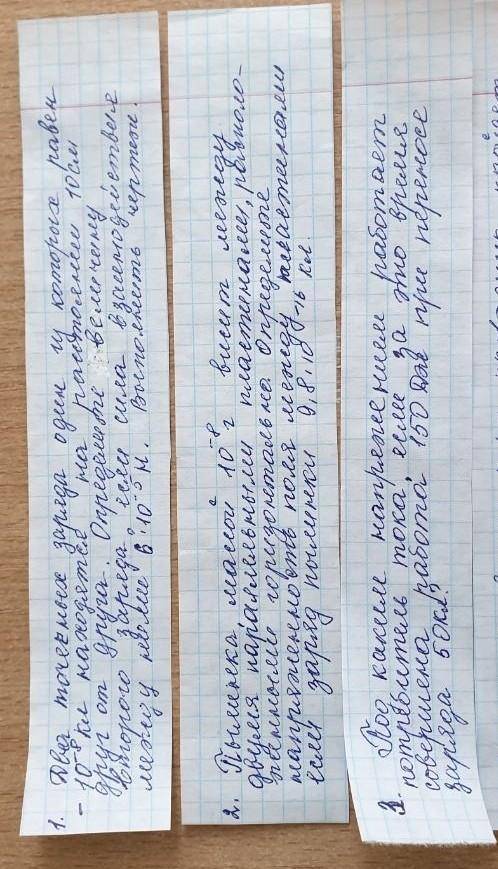 1. Два точечных заряда один из которых равен
- 10⁻⁸ кл находятся на расстоянии 10 см
друг от друга. Определите величину
второго заряда если сила взаимодействия
между ними 6·10⁻⁵ Н. Выполнить чертеж.
2. Пылинка, массой 10⁻⁸ г висит между
двумя параллельными пластинами, располо-
женными горизонтально. Определите
напряженность поля между пластинами
если заряд пылинки 9,8·10⁻¹⁶ кл.
3. Под каким напряжением работает
потребитель тока, если за это время
совершена работа 150 Дж при переносе
заряда 50кл?